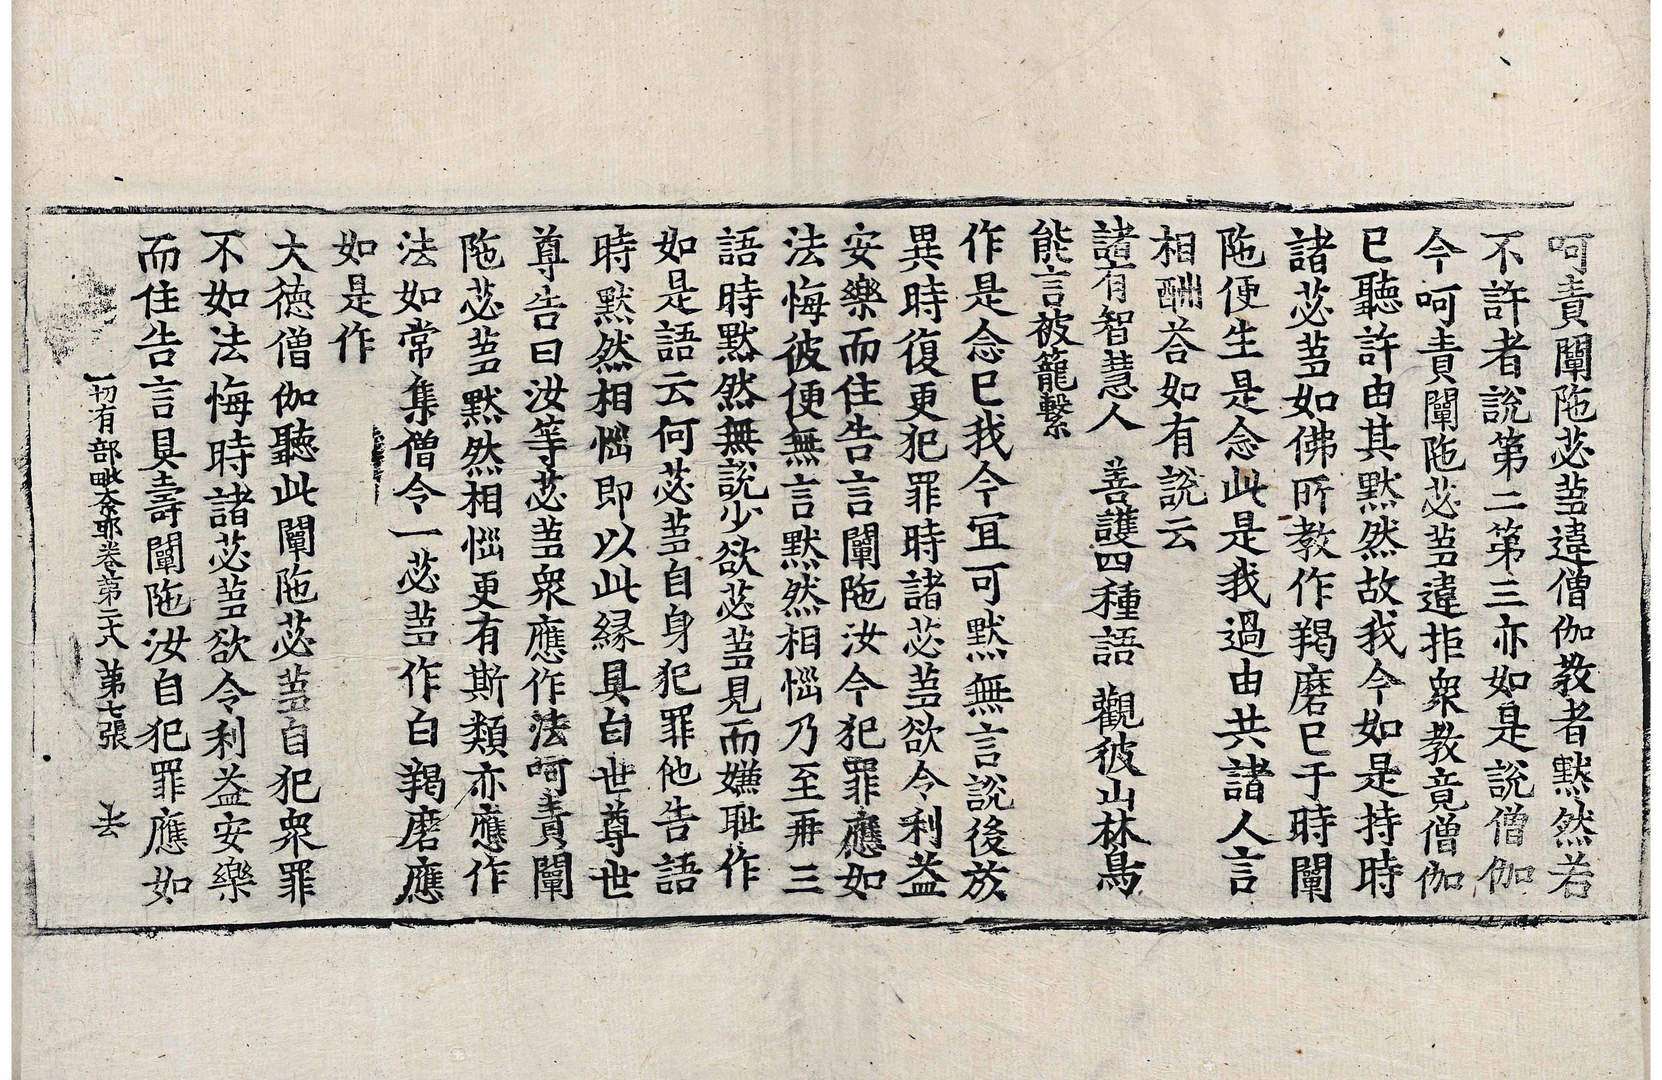 呵責闡陁苾蒭違僧伽教者默然若
不許者說第二第三亦如是說僧伽
今呵責闡陁苾蒭違拒衆教竟僧伽
已聽許由其默然故我今如是持時
諸苾蒭如佛所教作羯磨已于時闡
陁便生是念此是我過由共諸人言
相酬荅如有說云
諸有智慧人 善護四種語 觀彼山林鳥
能言被籠繫
作是念已我今宜可默無言說後於
異時復更犯罪時諸苾蒭欲令利益
安樂而住告言闡陁汝今犯罪應如
法悔彼便無言默然相惱乃至再三
語時默然無說少欲苾蒭見而嫌恥作
如是語云何苾蒭自身犯罪他告語
時默然相惱即以此緣具白世尊世
尊告曰汝等苾蒭衆應作法呵責闡
陁苾蒭默然相惱更有斯類亦應作
法如常集僧令一苾蒭作白羯磨應
如是作
大德僧伽聽此闡陁苾蒭自犯衆罪
不如法悔時諸苾蒭欲令利益安樂
而住告言具壽闡陁汝自犯罪應如
一切有部毗奈耶卷第二十八 第七張